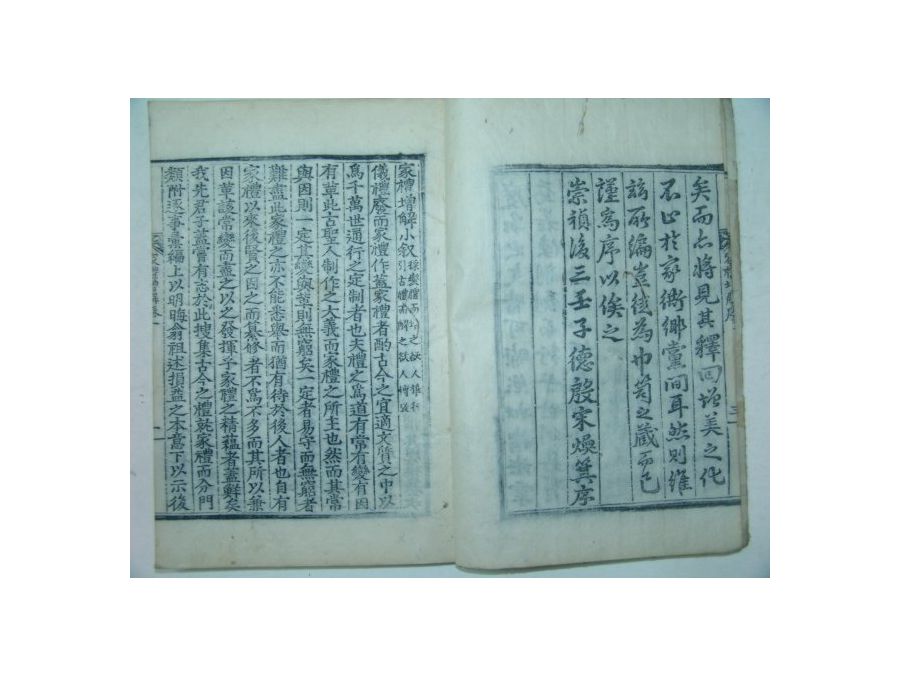 矣而亦將見其釋回增美之化
不止於家鄕鄰黨間耳然則維
玆所編豈徒為巾笥之藏而已
謹為序以俟之
崇禎後三壬子德殷宋煥箕序
家禮增解小叙
儀禮廢而家禮作蓋家禮者酌古今之宜適文質之中以
爲千萬世通行之定制者也夫禮之爲道有常有變有因
有革此古聖人制作之大義而家禮之所主也然而其常
與因則一定其變與革則無窮矣一定者易守而無窮者
難盡此家禮之亦不能悉擧而猶有待於後人者也自有
家禮以來後賢之因之而纂修者不爲不多而其所以兼
因革該常變而盡之以之發揮乎家禮之精蘊者蓋鮮矣
我先君子蓋嘗有志於此搜集古今之禮就家禮而分門
類附逐事彙編上以明晦翁祖述損益之本意下以示後